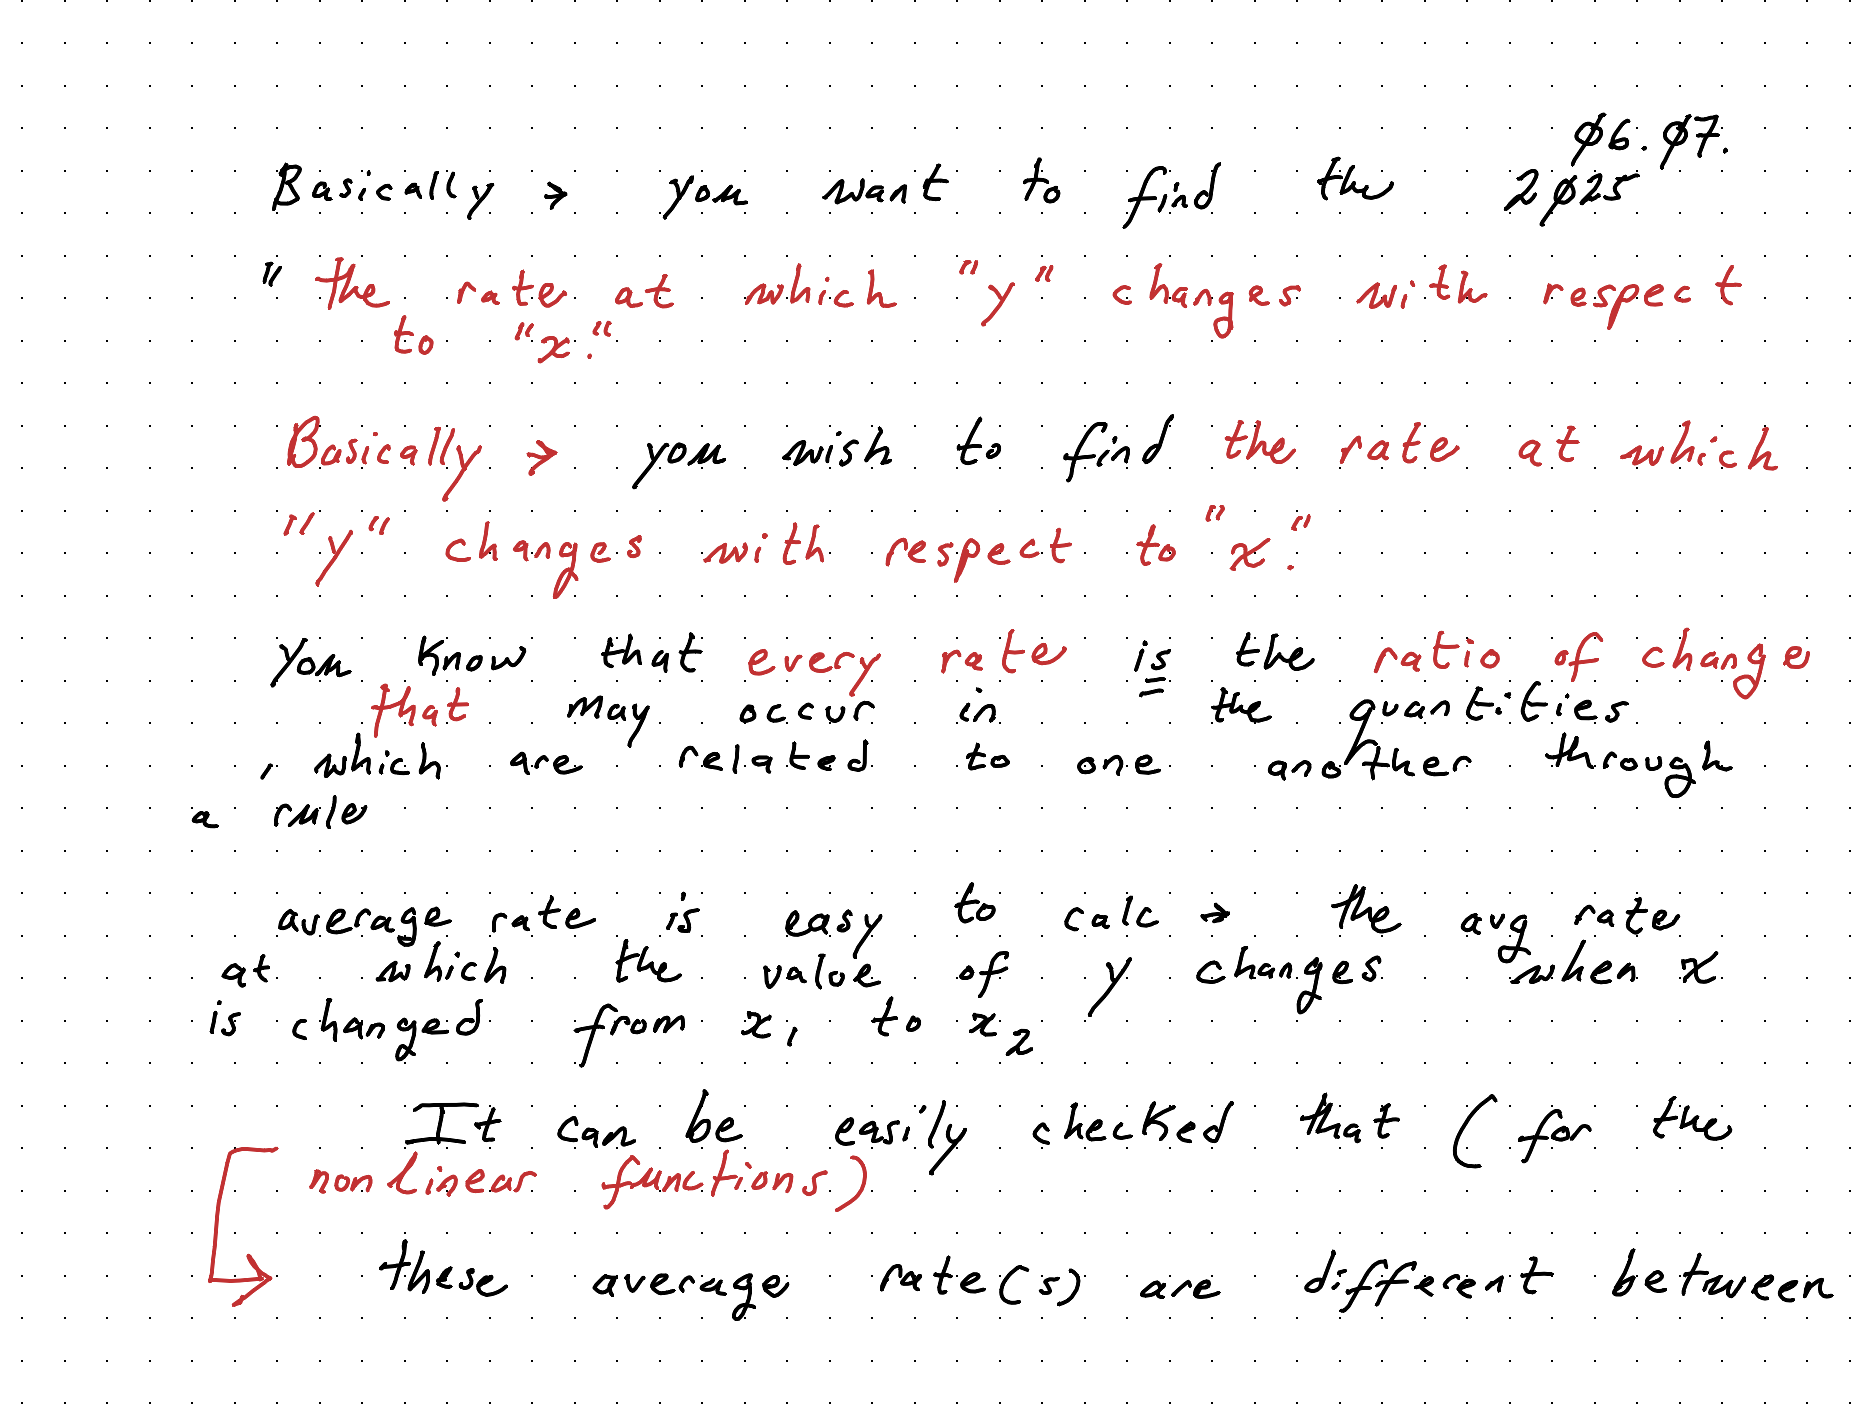 Ø6.Ø7.
Basically → you want to find the 2Ø25
" the rate at which "y" changes with respect
to "x."
Basically → you wish to find the rate at which
"y" changes with respect to "x."
you know that every rate is the ratio of change
that may occur in the quantities
, which are related to one another through
a rule
average rate is easy to calc → the avg rate
at which the value of y changes when x
is changed from x₁ to x₂
It can be easily checked that (for the
nonlinear functions)
→ these average rate(s) are different between